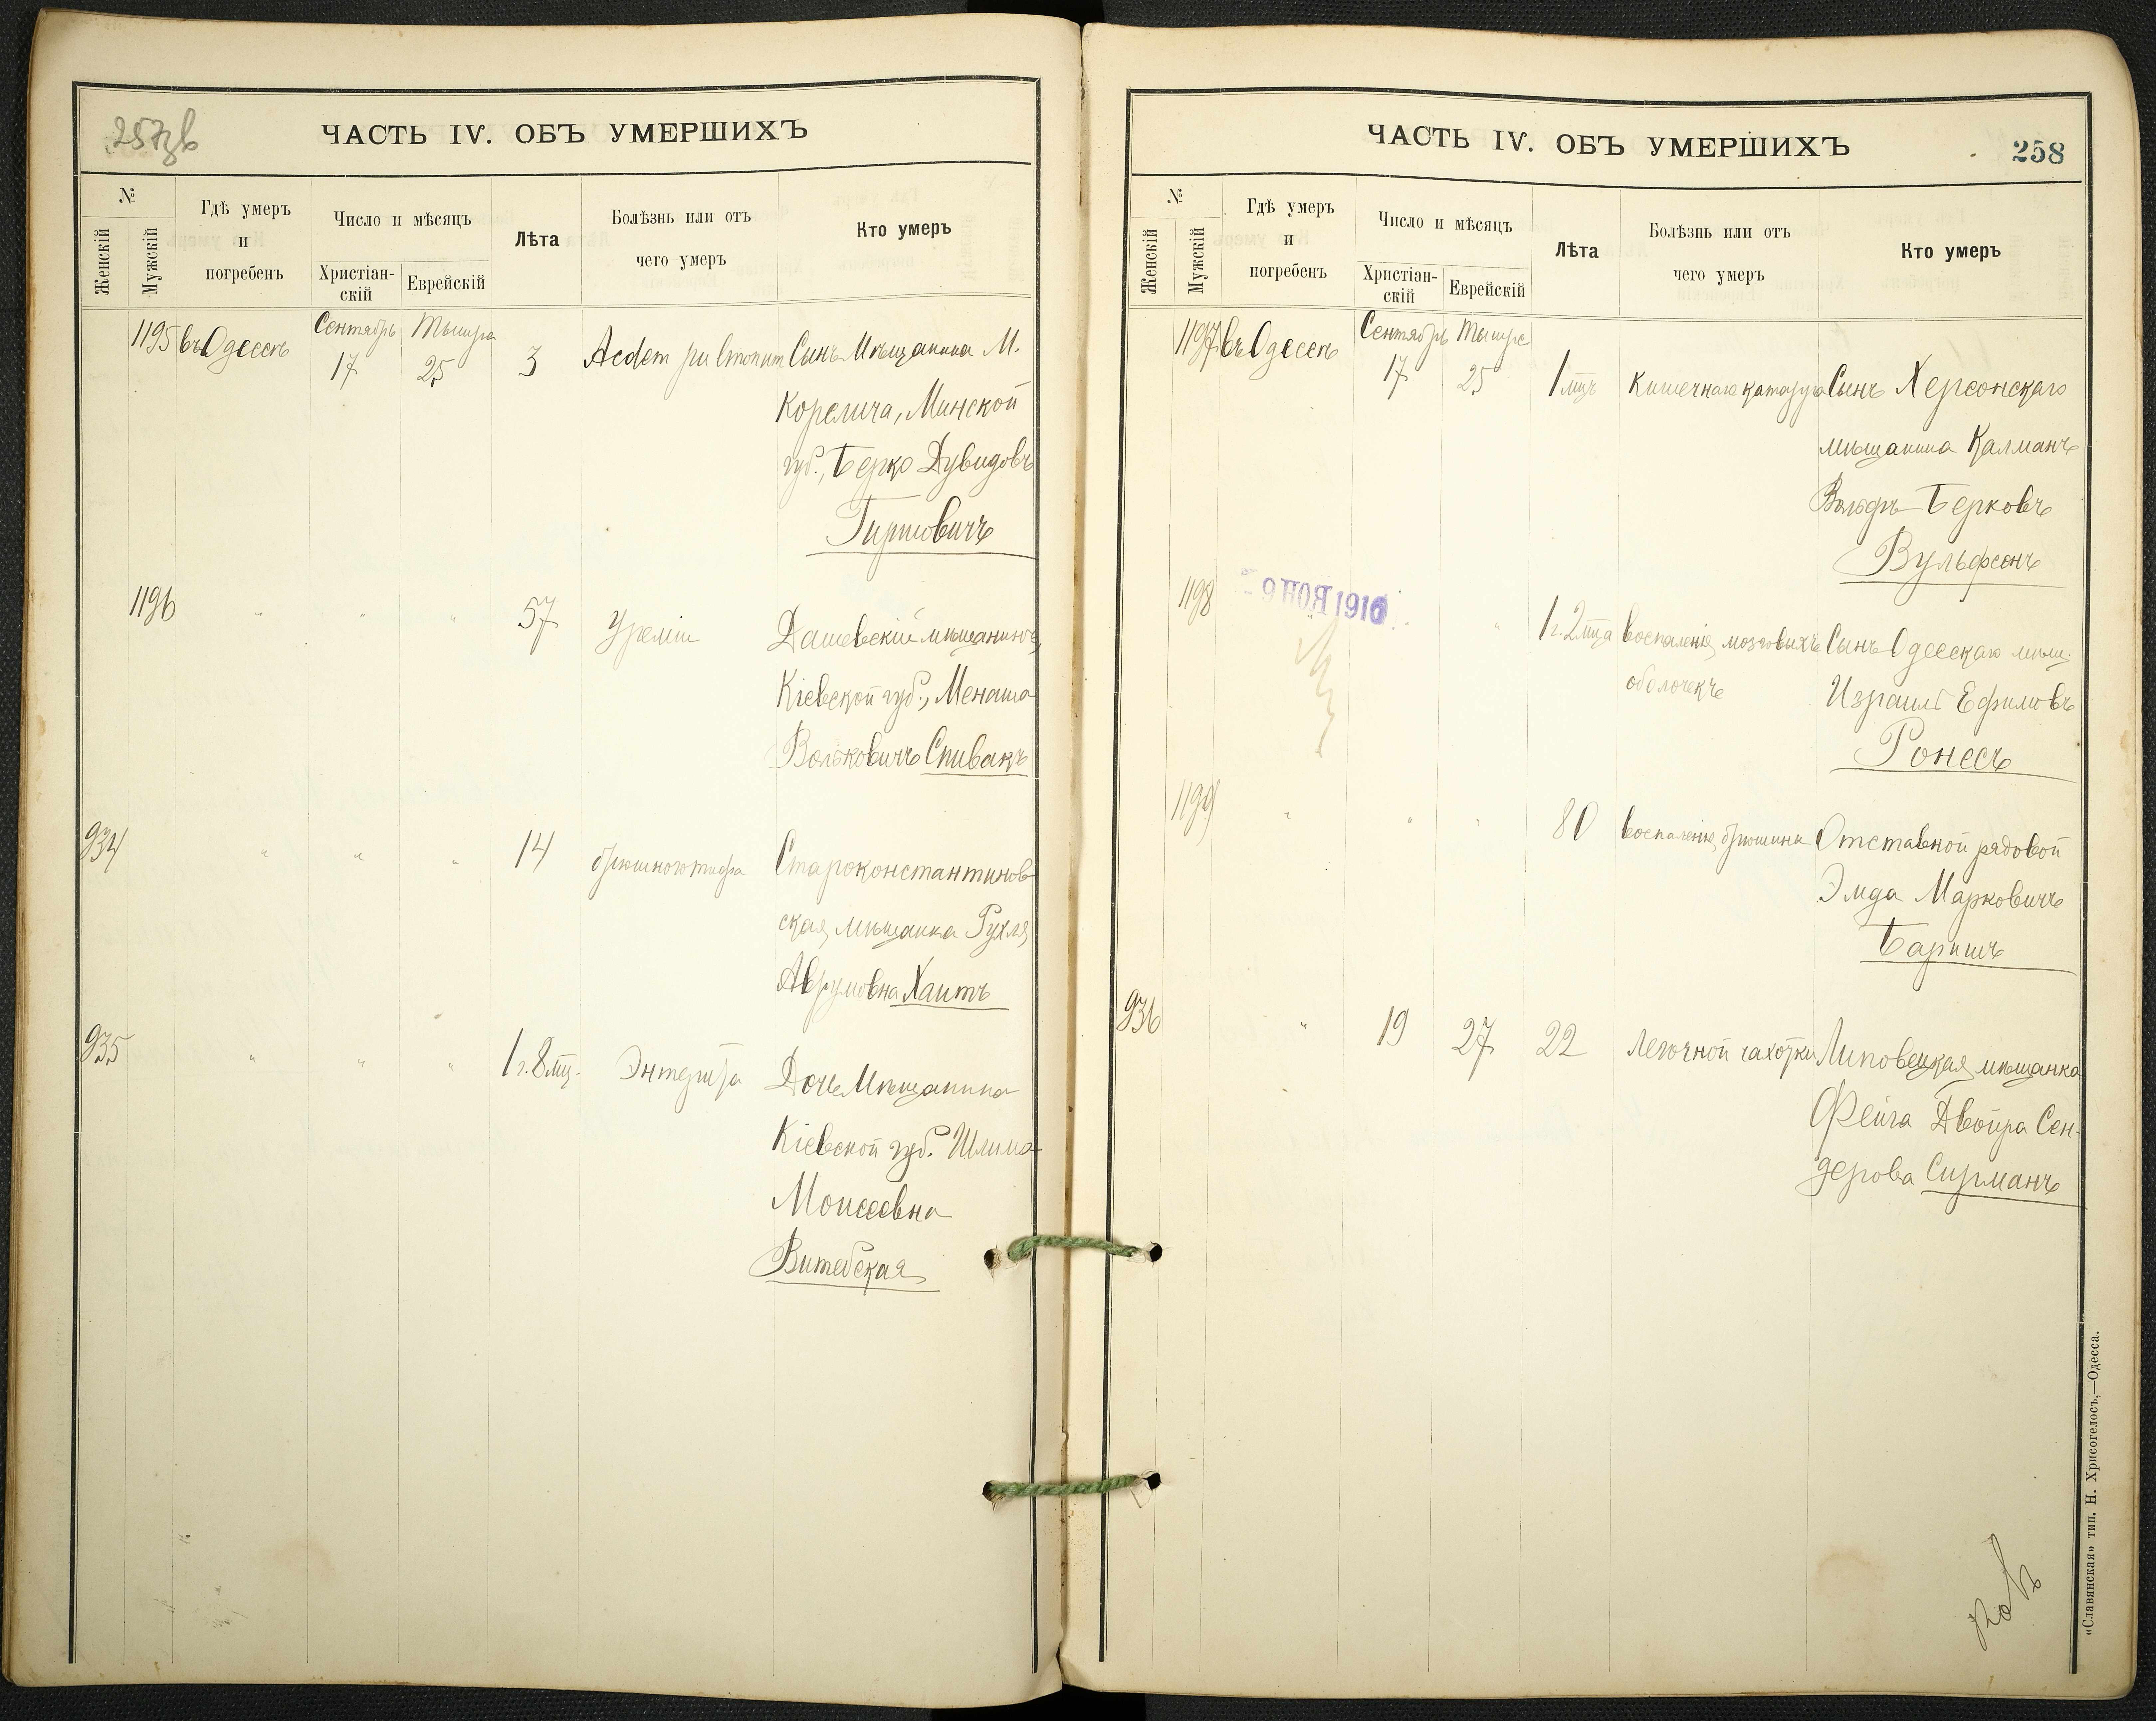 257 зв
ЧАСТЬ IV. ОБЪ УМЕРШИХЪ
№
Женскій
Мужскій
Гдѣ умеръ
и
погребенъ
Число и мѣсяцъ
Христіан-
скій
Еврейскій
Лѣта
Болѣзнь или отъ
чего умеръ
Кто умеръ
1195 въ Одессѣ Сентябрь 17 Тышре 25 3 Сынъ Мѣщанина М.
Корелича, Минской
губ., Берко Дувидовъ
Гиршовичъ
1196 " " " 57 Уреміи Дашевскій мѣщанинъ,
Кіевской губ., Менаша
Вольковичъ Спивакъ
934 " " " 14 брюшного тифа Староконстантинов
ская мѣщанка Рухля
Аврумовна Хаитъ
935 " " " 1 г. 8 мц. Энтерита Дочь Мѣщанина
Кіевской губ. Шлима
Моисеевна
Витебская
ЧАСТЬ IV. ОБЪ УМЕРШИХЪ
258
№
Женскій
Мужскій
Гдѣ умеръ
и
погребенъ
Число и мѣсяцъ
Христіан-
скій
Еврейскій
Лѣта
Болѣзнь или отъ
чего умеръ
Кто умеръ
1197 въ Одессѣ Сентябрь 17 Тышре 25 1 мцъ Кишечнаго катарра Сынъ Херсонскаго
мѣщанина Калманъ
Вольфъ Берковъ
Вульфсонъ
- 9 НОЯ 1916
1198 " 1 г. 2 мца воспаленія мозговыхъ Сынъ Одесскаго мѣщ.
оболочекъ Израиль Ефимовъ
Ронесъ
1199 " " " 80 воспаленія брюшины Отставной рядовой
Эмда Марковичъ
Баришъ
936 " 19 27 22 Легочной чахотки Липовецкая мѣщанка
Фейга Двойра Сен-
дерова Сирманъ
«Славянская» тип. Н. Хрисогелосъ,—Одесса.